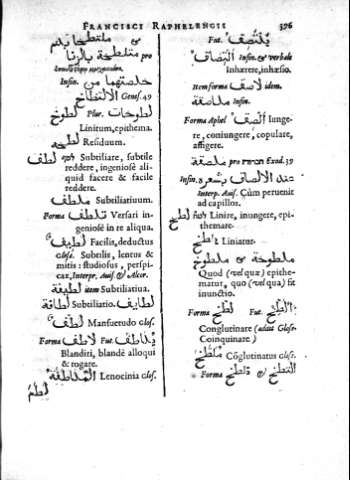 FRANCISCI RAPHELENGII 576
& ملتطحا بدم
متلطحة بالزنا pro
Infin. خلصتهما من
الالتطاخ Genes. 49
Plur. لطوحات لطوخ
Linitum, epithema.
لطخه Residuum.
لطف Subtiliare, subtile
reddere, ingeniosè ali-
quid facere & facile
reddere.
ملطف Subtiliatiuum.
Forma تلطف Versari in-
geniosè in re aliqua.
لطيف G Facilis, deductus
Glosf. Subtilis, lentus &
mitis: studiosus, perspi-
cax, Interpr. Auis. & Alcor.
لطيفة item Subtiliatiua.
لطايف Subtiliatio. لطافة
لطف G Mansuetudo Glos.
Forma لاطف Fut. يلاطف
Blandiri, blandè alloqui
& rogare.
الملاطفة G Lenocinia Glos.
لطم
Fut. يلتصق
البصاق Infin. & verbale
Inhærere, inhæsio.
Item forma لاصق idem.
ملاصقة Infin.
Forma Aphel الصق Iunge-
re, coniungere, copulare,
affigere.
ملصقة pro Exod. 39
Infin. عند الالصاق بشعره
Interp. Auis. Cùm peruenit
ad capillos.
لطخ Linire, inungere, epi-
themare.
Liniatur.
ملطوخة & ملطوخ
Quod (vel quæ) epithe-
matur, quo (vel qua) fit
inunctio.
Forma لطخ Fut.
Conglutinare (addit Glos.
Coinquinare)
ملطخ Cōglutinatus Glos.
Forma التطخ &